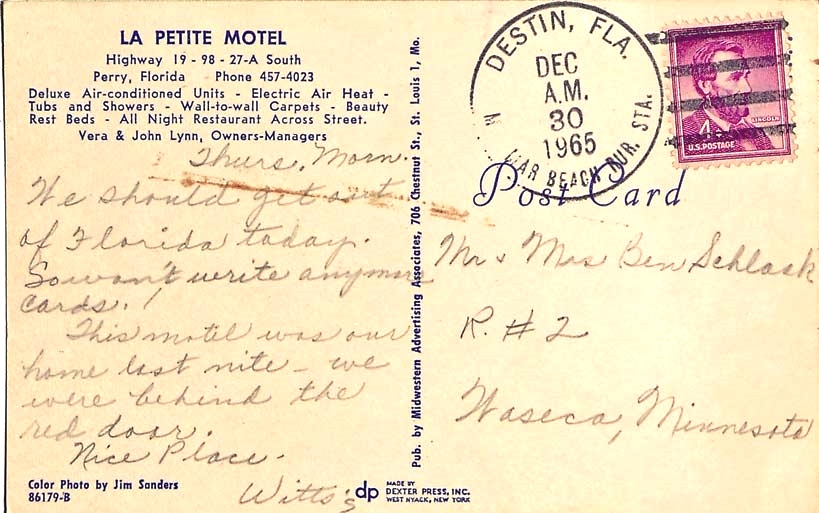 LA PETITE MOTEL
Highway 19 - 98 - 27-A South
Perry, Florida Phone 457-4023
Deluxe Air-conditioned Units - Electric Air Heat -
Tubs and Showers - Wall-to-wall Carpets - Beauty
Rest Beds - All Night Restaurant Across Street.
Vera & John Lynn, Owners-Managers
Thurs. Morn.
We should get out
of Florida today.
So won't write anymore
cards.!
This motel was our
home last nite - we
were behind the
red door.
Nice Place.
Witts's
Color Photo by Jim Sanders
86179-B
Pub. by Midwestern Advertising Associates, 706 Chestnut St., St. Louis 1, Mo.
dp
MADE BY
DEXTER PRESS, INC.
WEST NYACK, NEW YORK
DESTIN, FLA.
DEC
A.M.
30
1965
BEACH RUR. STA.
4¢
LINCOLN
U.S. POSTAGE
Post Card
Mr & Mrs Ben Schlaak
R. # 2
Waseca, Minnesota